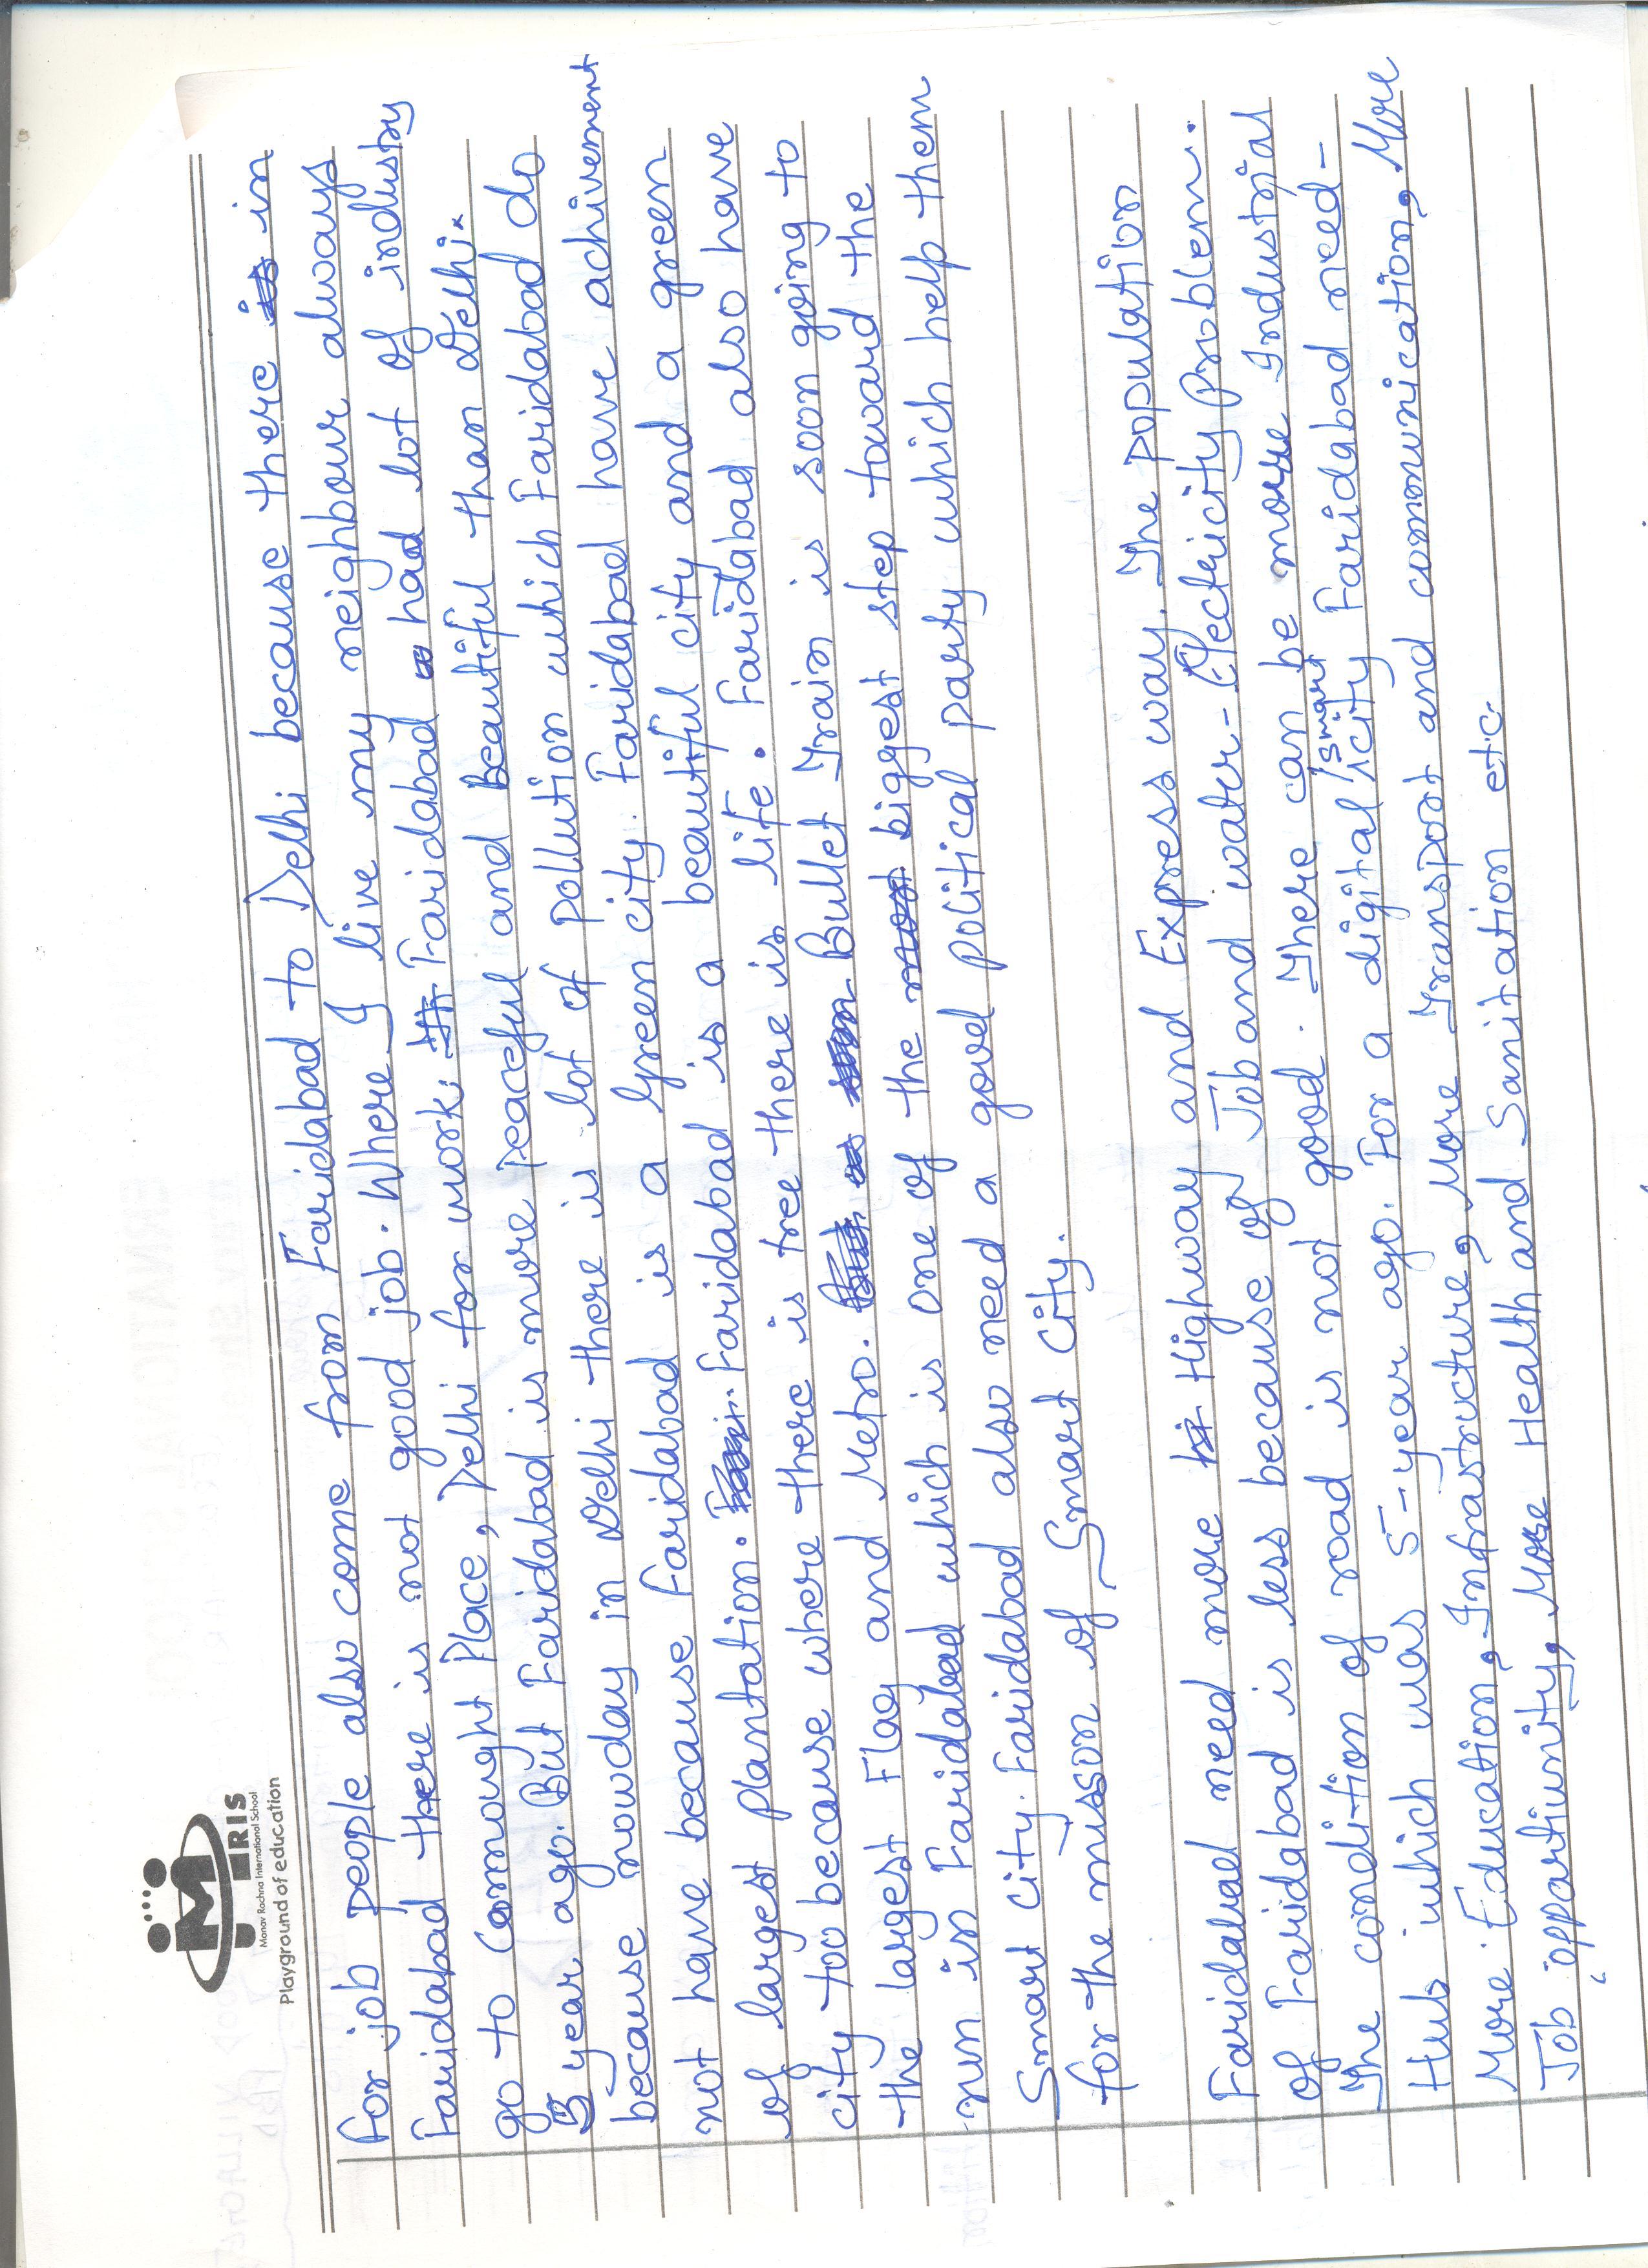 MRIS
Manav Rachna International School
Playground of education
for job people also come from Faridabad to Delhi because there is in
Faridabad there is not good job. Where I live my neighbour always
go to Connought Place, Delhi for work. Faridabad had lot of industry
5 year ago. But Faridabad is more peaceful and beautiful than Delhi.
because nowday in Delhi there is lot of pollution which Faridabad do
not have because Faridabad is a Green city. Faridabad have achivement
of largest plantation. Faridabad is a beautiful city and a green
city too because where there is tree there is life. Faridabad also have
the largest Flag and Metro. Bullet Train is soon going to
run in Faridabad which is one of the most biggest step toward the
Smart city. Faridabad also need a good political party which help them
for the misson of Smart City.
Faridabad need more Highway and Express way. The population
of Faridabad is less because of Job and water-Electricity problem.
The condition of road is not good. There can be more Industrial
Hub which was 5-year ago. For a digital/smart city Faridabad need-
More Education, Infrastructure, More Transport and communication, More
Job oppartiunity, More Health and Sanitation etc.